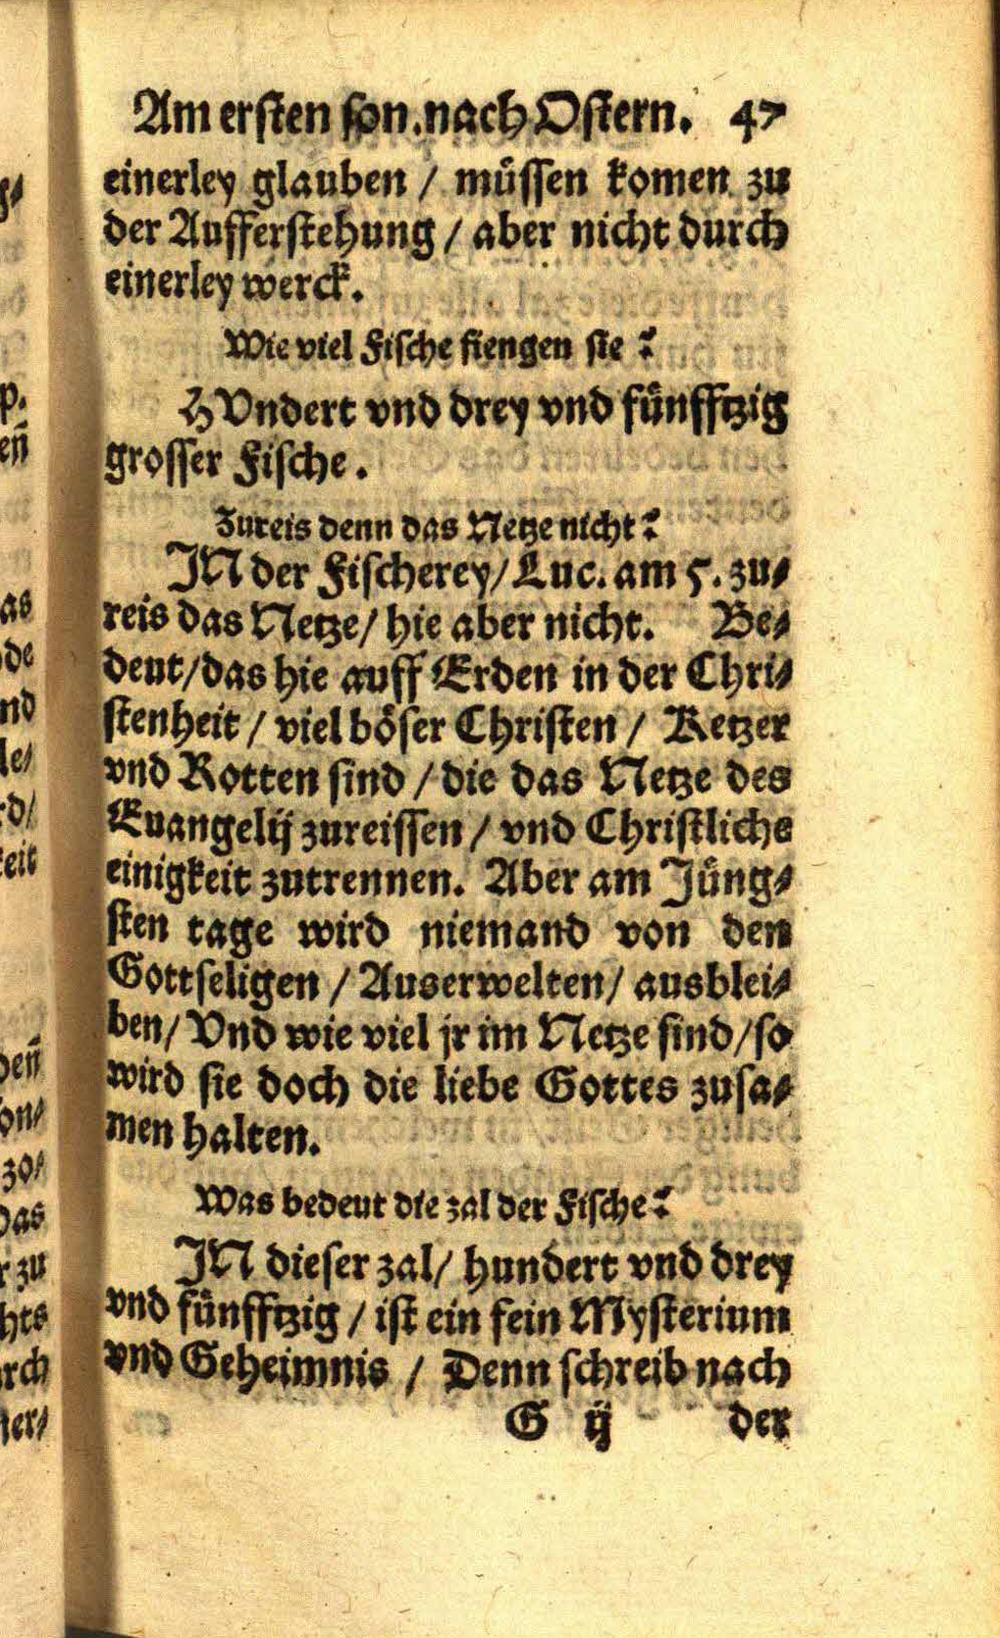 Am ersten son. nach Ostern. 47
einerley glauben / müssen komen zu
der Aufferstehung / aber nicht durch
einerley werck.
Wie viel Fische fiengen sie?
HVndert vnd drey vnd fünfftzig
grosser Fische.
Zureis denn das Netze nicht?
IN der Fischerey / Luc. am 5. zu⸗
reis das Netze / hie aber nicht. Be⸗
deut / das hie auff Erden in der Chri⸗
stenheit / viel böser Christen / Ketzer
vnd Rotten sind / die das Netze des
Euangelij zureissen / vnd Christliche
einigkeit zutrennen. Aber am Jüng⸗
sten tage wird niemand von den
Gottseligen / Auserwelten / ausblei⸗
ben / Vnd wie viel jr im Netze sind / so
wird sie doch die liebe Gottes zusa⸗
men halten.
Was bedeut die zal der Fische?
IN dieser zal / hundert vnd drey
vnd fünfftzig / ist ein fein Mysterium
vnd Geheimnis / Denn schreib nach
G ij der